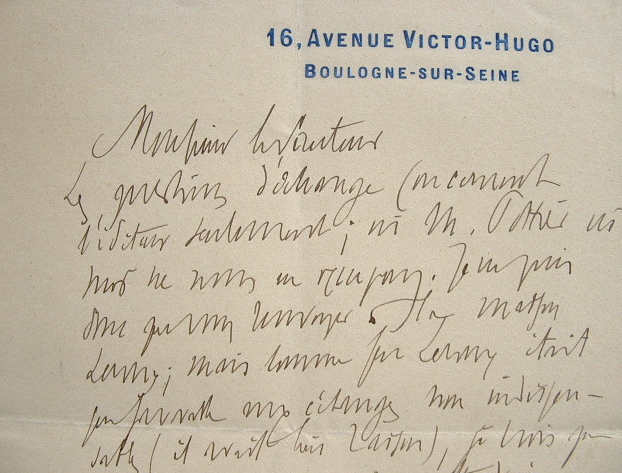 16, AVENUE VICTOR-HUGO
BOULOGNE-SUR-SEINE
Monsieur le Directeur
Les questions d'échange concernent
l'éditeur seulement ; ni M. Pottier ni
moi ne nous en occupons. Je ne puis
donc que vous renvoyer à la maison
Leroux ; mais comme feu Leroux était
peu favorable aux échanges non indispen-
sables (il avait bien raison), je crois que